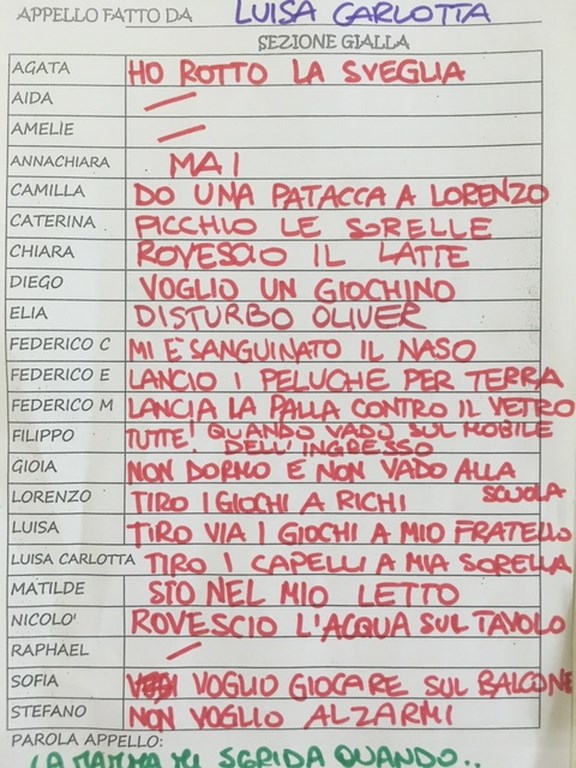 APPELLO FATTO DA LUISA CARLOTTA
SEZIONE GIALLA
AGATA HO ROTTO LA SVEGLIA
AIDA /
AMELIE /
ANNACHIARA MAI
CAMILLA DO UNA PATACCA A LORENZO
CATERINA PICCHIO LE SORELLE
CHIARA ROVESCIO IL LATTE
DIEGO VOGLIO UN GIOCHINO
ELIA DISTURBO OLIVER
FEDERICO C MI È SANGUINATO IL NASO
FEDERICO E LANCIO I PELUCHE PER TERRA
FEDERICO M LANCIA LA PALLA CONTRO IL VETRO
FILIPPO TUTTE! QUANDO VADO SUL MOBILE
DELL'INGRESSO
GIOIA NON DORMO E NON VADO ALLA
SCUOLA
LORENZO TIRO I GIOCHI A RICHI
LUISA TIRO VIA I GIOCHI A MIO FRATELLO
LUISA CARLOTTA TIRO I CAPELLI A MIA SORELLA
MATILDE STO NEL MIO LETTO
NICOLO' ROVESCIO L'ACQUA SUL TAVOLO
RAPHAEL /
SOFIA VOGLIO GIOCARE SUL BALCONE
STEFANO NON VOGLIO ALZARMI
PAROLA APPELLO:
LA MAMMA MI SGRIDA QUANDO..